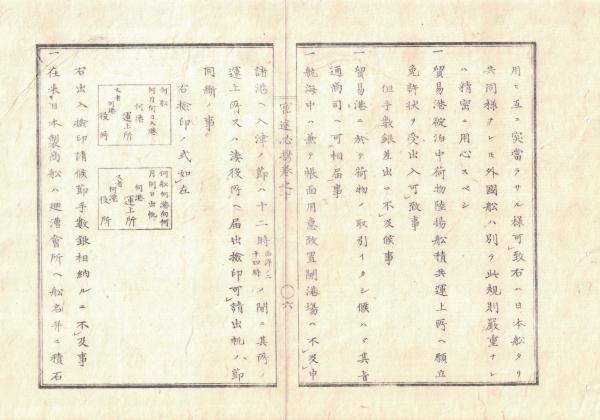 用ヒ互ニ突當ラサル様可致右ハ日本船タリ
共同様ナレ𪜈外國船ハ別ヲ此規則嚴重ナレ
ハ精密ニ用心スベシ
一 貿易港碇泊中荷物陸揚船積共運上所ヘ願立
免許狀ヲ受出入可致事
但手數銀差出ニ不及候事
一 貿易港ニ於テ荷物ノ取引イタシ候ハヾ其旨
通商司ヘ可相届事
一 航海中ハ兼テ帳面用意致置開港場ハ不及申
官途必携巻之十
〇六
諸港ヘ入津ノ節ハ十二時西洋ノ二十四時ノ間ニ其所ノ
運上所又ハ湊役所ヘ届出撿印可請出帆ノ節
同斷ノ事
右撿印ノ式如左
何船
何月何日入港
何港
運上所
又者
何港
役所
何船何港向何
月何日出帆
何港
運上所
又者
何港
役所
右出入撿印請候節手數銀相納ルニ不及事
一 在来日本製商船ハ廻漕會所ヘ船名并ニ積石